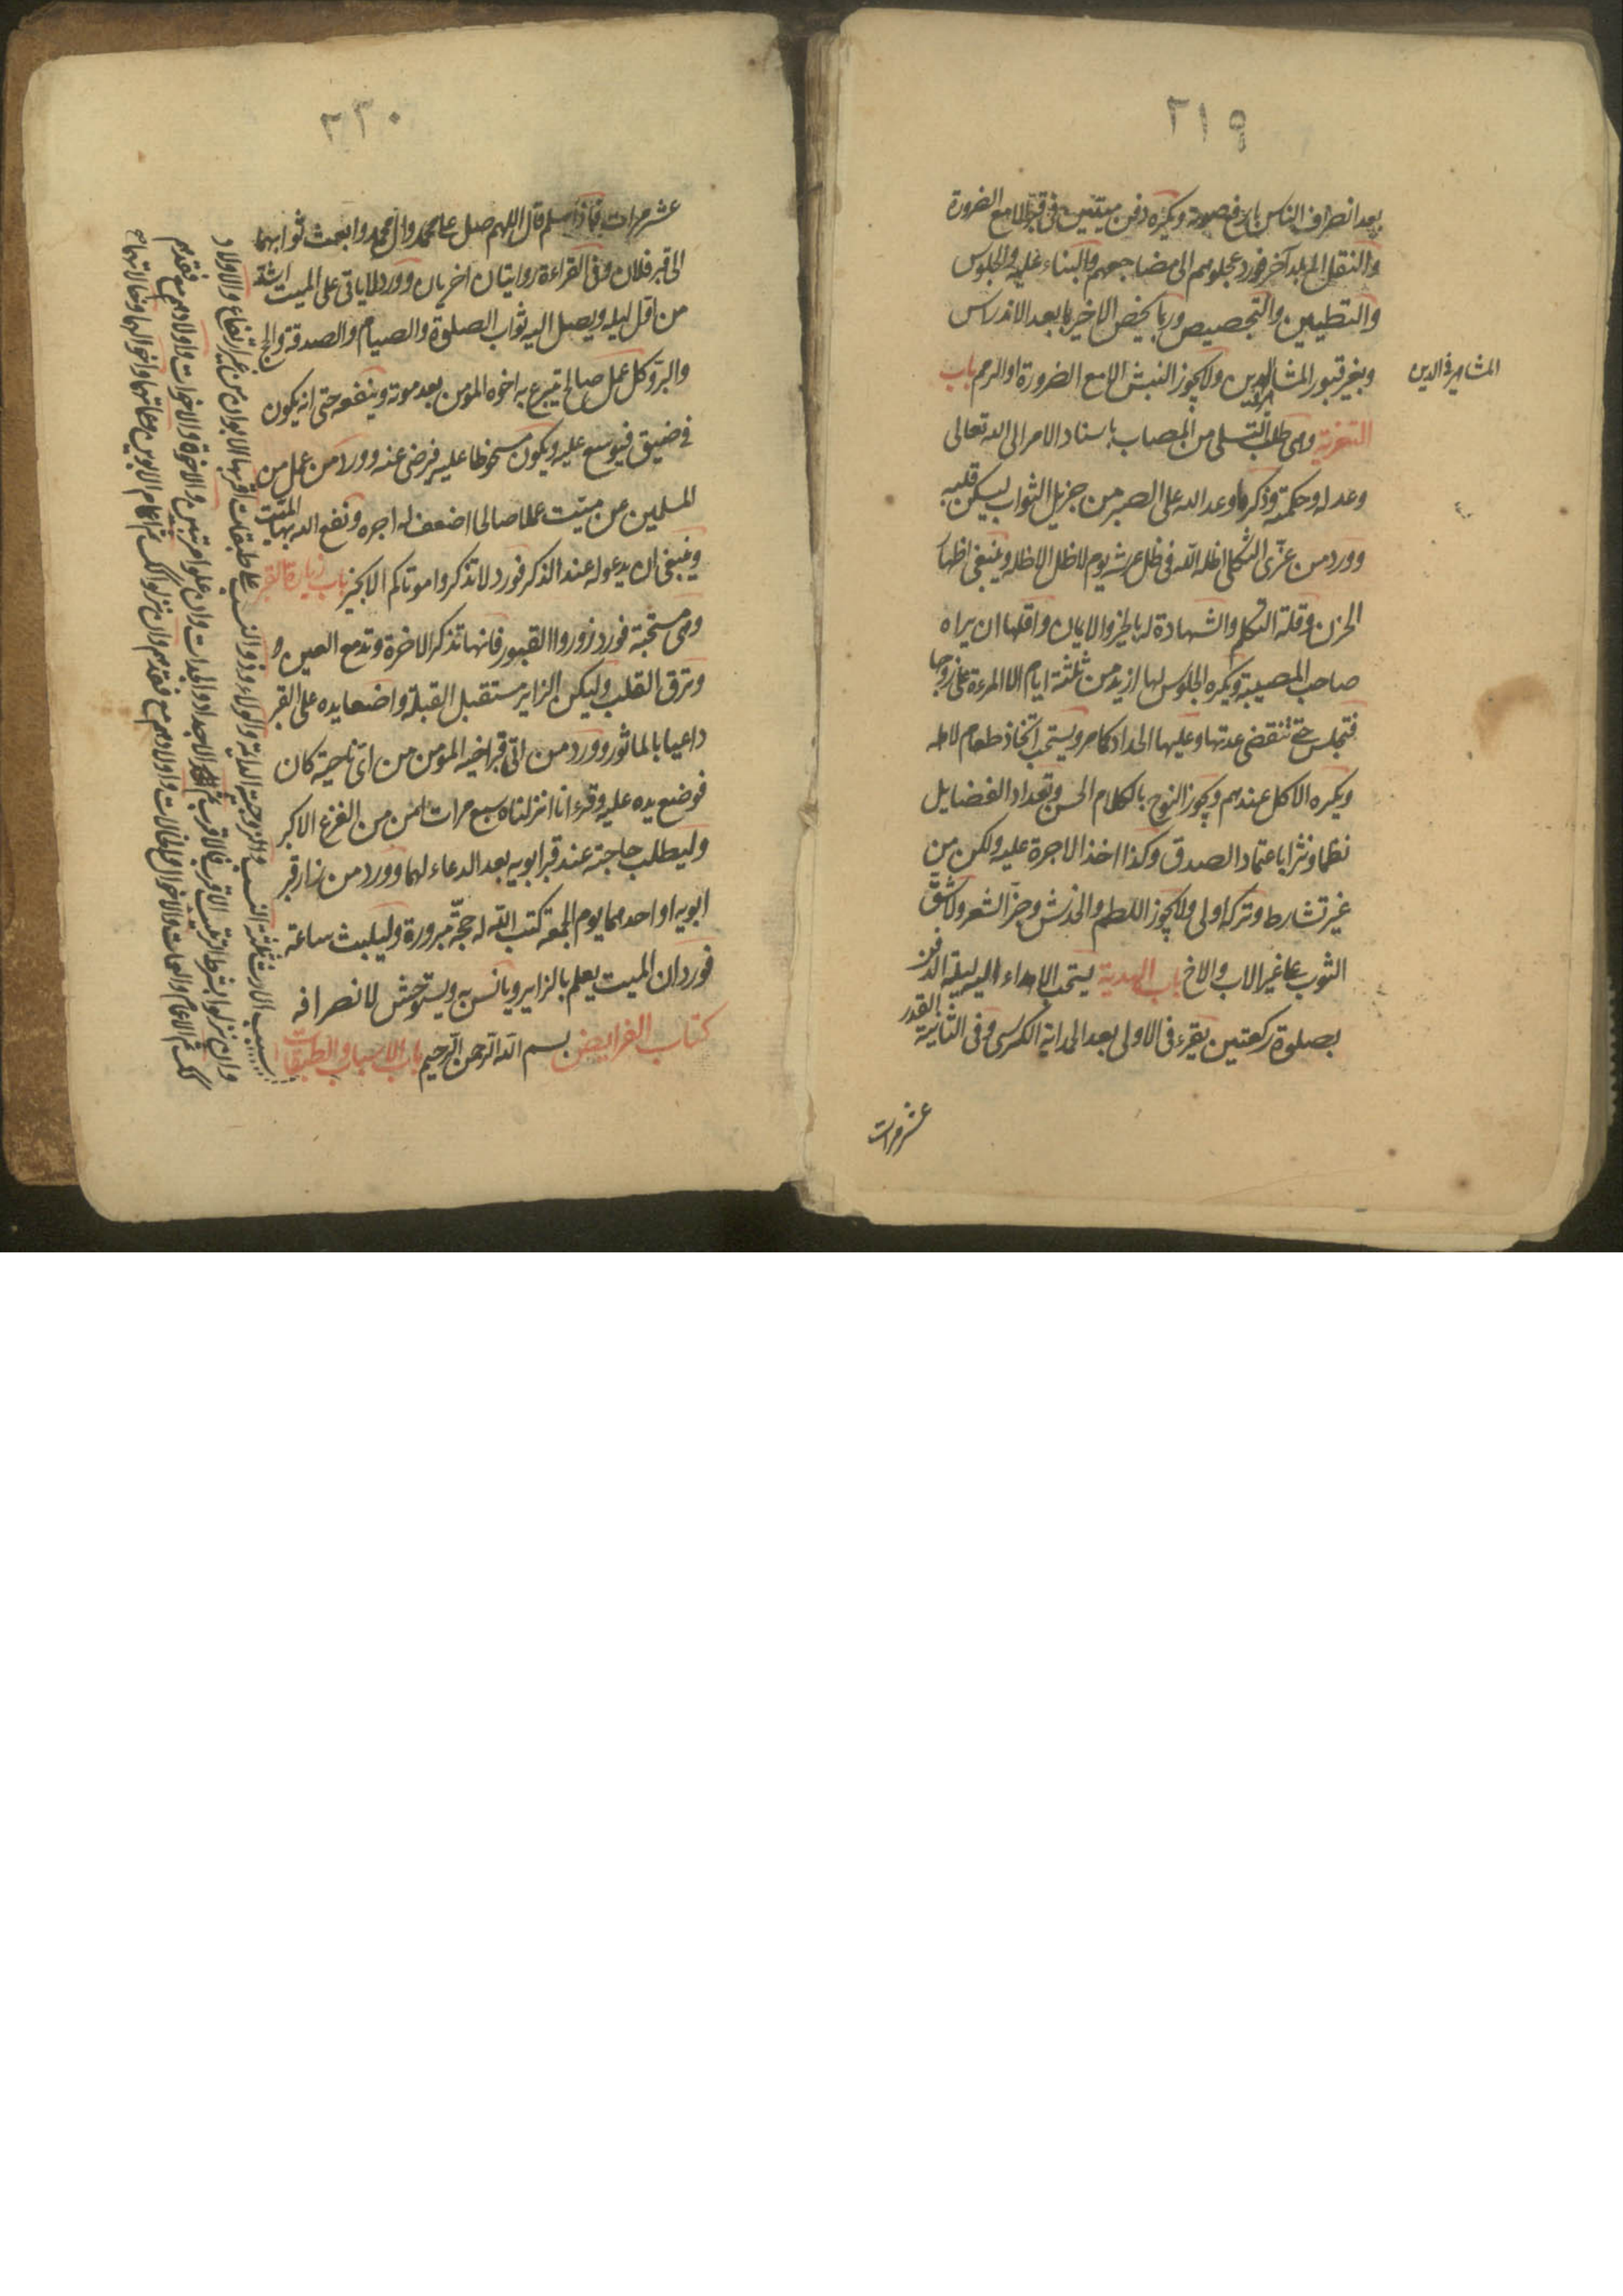 ٢١٩
بعد انصراف الناس بارفع صوته ويكره دفن ميتين في قبر الا مع الضرورة
والنقل الى بلد آخر فورد عجلوهم الى مضاجعهم والبناء عليه والجلوس
والتطيين والتجصيص وربما يخص الاخير بما بعد الاندراس
وبغير قبور المشاهير ولا يجوز النبش الا مع الضرورة او الرحم باب
المشاهير في الدين
التعزية وهى طلب التسلى من المصاب باسناد الامر الى الله تعالى
وعدله وحكمته وذكر ما وعد الله على الصبر من جزيل الثواب ليسكن قلبه
وورد من عزّى الثكلى اظله الله في ظل عرشه يوم لا ظل الا ظله وينبغى اظهار
الحزن وقلة التكلم والشهادة له بالخير والايمان واقلها ان يراه
صاحب المصيبة ويكره الجلوس لها ازيد من ثلثة ايام الا المرءة على زوجها
فتجلس حتى تنقضى عدتها وعليها الحداد كما مر ويستحب اتخاذ طعام لاهله
ويكره الاكل عندهم ويجوز النوح بالكلام الحسن وتعداد الفضايل
نظما ونثرا باعتماد الصدق وكذا اخذ الاجرة عليه ولكن من
غير تشارط وتركه اولى ولا يجوز اللطم والخدش وجزّ الشعر ولا شقّ
الثوب على غير الاب والاخ باب الهدية يستحب الاهداء اليه ليلة الدفن
بصلوة ركعتين يقرء في الاولى بعد الحمد اية الكرسى وفى الثانية القدر
عشر مرات
٢٣٠
عشر مرات فاذا سلم قال اللهم صل على محمد وال محمد وابعث ثوابهما
الى قبر فلان وفى القراءة روايتان اخريان وورد لا ياتى على الميت اشد
من اقل ليله ويصل اليه ثواب الصلوة والصيام والصدقة والحج
والبر وكل عمل صالح يتبرع به اخوه المؤمن بعد موته وينفعه حتى انه يكون
في ضيق فيوسع عليه ويكون مسخوطا عليه فيرضى عنه وورد من عمل من
المسلمين عن ميت عملا صالحا اضعف له اجره ونفع الله بها الميت
وينبغى ان يدعو له عند الذكر فورد لا تذكروا موتاكم الا بخير باب زيارة القبر
وهى مستحبة فورد زوروا القبور فانها تذكر الاخرة وتدمع العين و
وترق القلب وليكن الزاير مستقبل القبلة واضعا يده على القبر
داعيا بالماثور وورد من اتى قبر اخيه المؤمن من اى ناحية كان
فوضع يده عليه وقرء انا انزلناه سبع مرات امن من الفزع الاكبر
وليطلب حاجته عند قبر ابويه بعد الدعاء لهما وورد من زار قبر
ابويه او احدهما يوم الجمعة كتب الله له حجّة مبرورة وليلبث ساعة
فورد ان الميت يعلم بالزاير ويانس به ويستوحش لانصرافه
كتاب الفرايض بسم الله الرحمن الرحيم باب الاسباب والطبقات
سبب الارث ثلثة النسب والزوجية الدايمة والولاء وذو النسب على طبقات اقربها الابوان من غير ارتفاع والاولاد
وان نزلوا بشرط الترتيب الاقرب فالاقرب ثم الاجداد والجدات وان علوا مرتبين والاخوة والاخوات واولادهم مع فقدهم
كك ثم الاعمام والعمات والاخوال والخالات واولادهم مع فقدهم وان نزلوا كك ثم اعمام الابوين وعماتهما واخوالهما وخالاتهما